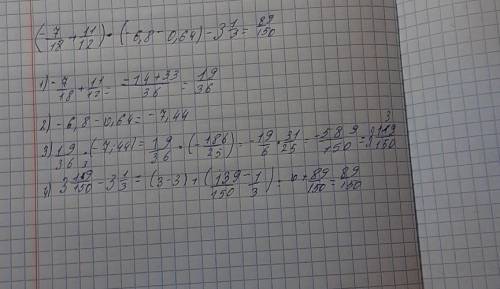 (-7/18 + 11/12) · (-6,8 - 0,64) - 3 1/3 = 89/150
1) -7/18 + 11/12 = -14+33/36 = 19/36
2) -6,8 - 0,64 = -7,44
3) 19/36 · (7,44) = 19/36 · (-186/25) = -19/6 · 31/25 = -589/150 =
4) 3 139/150 - 3 1/3 = (3-3) + (139/150 - 1/3) = 0 + 89/150 = 89/150